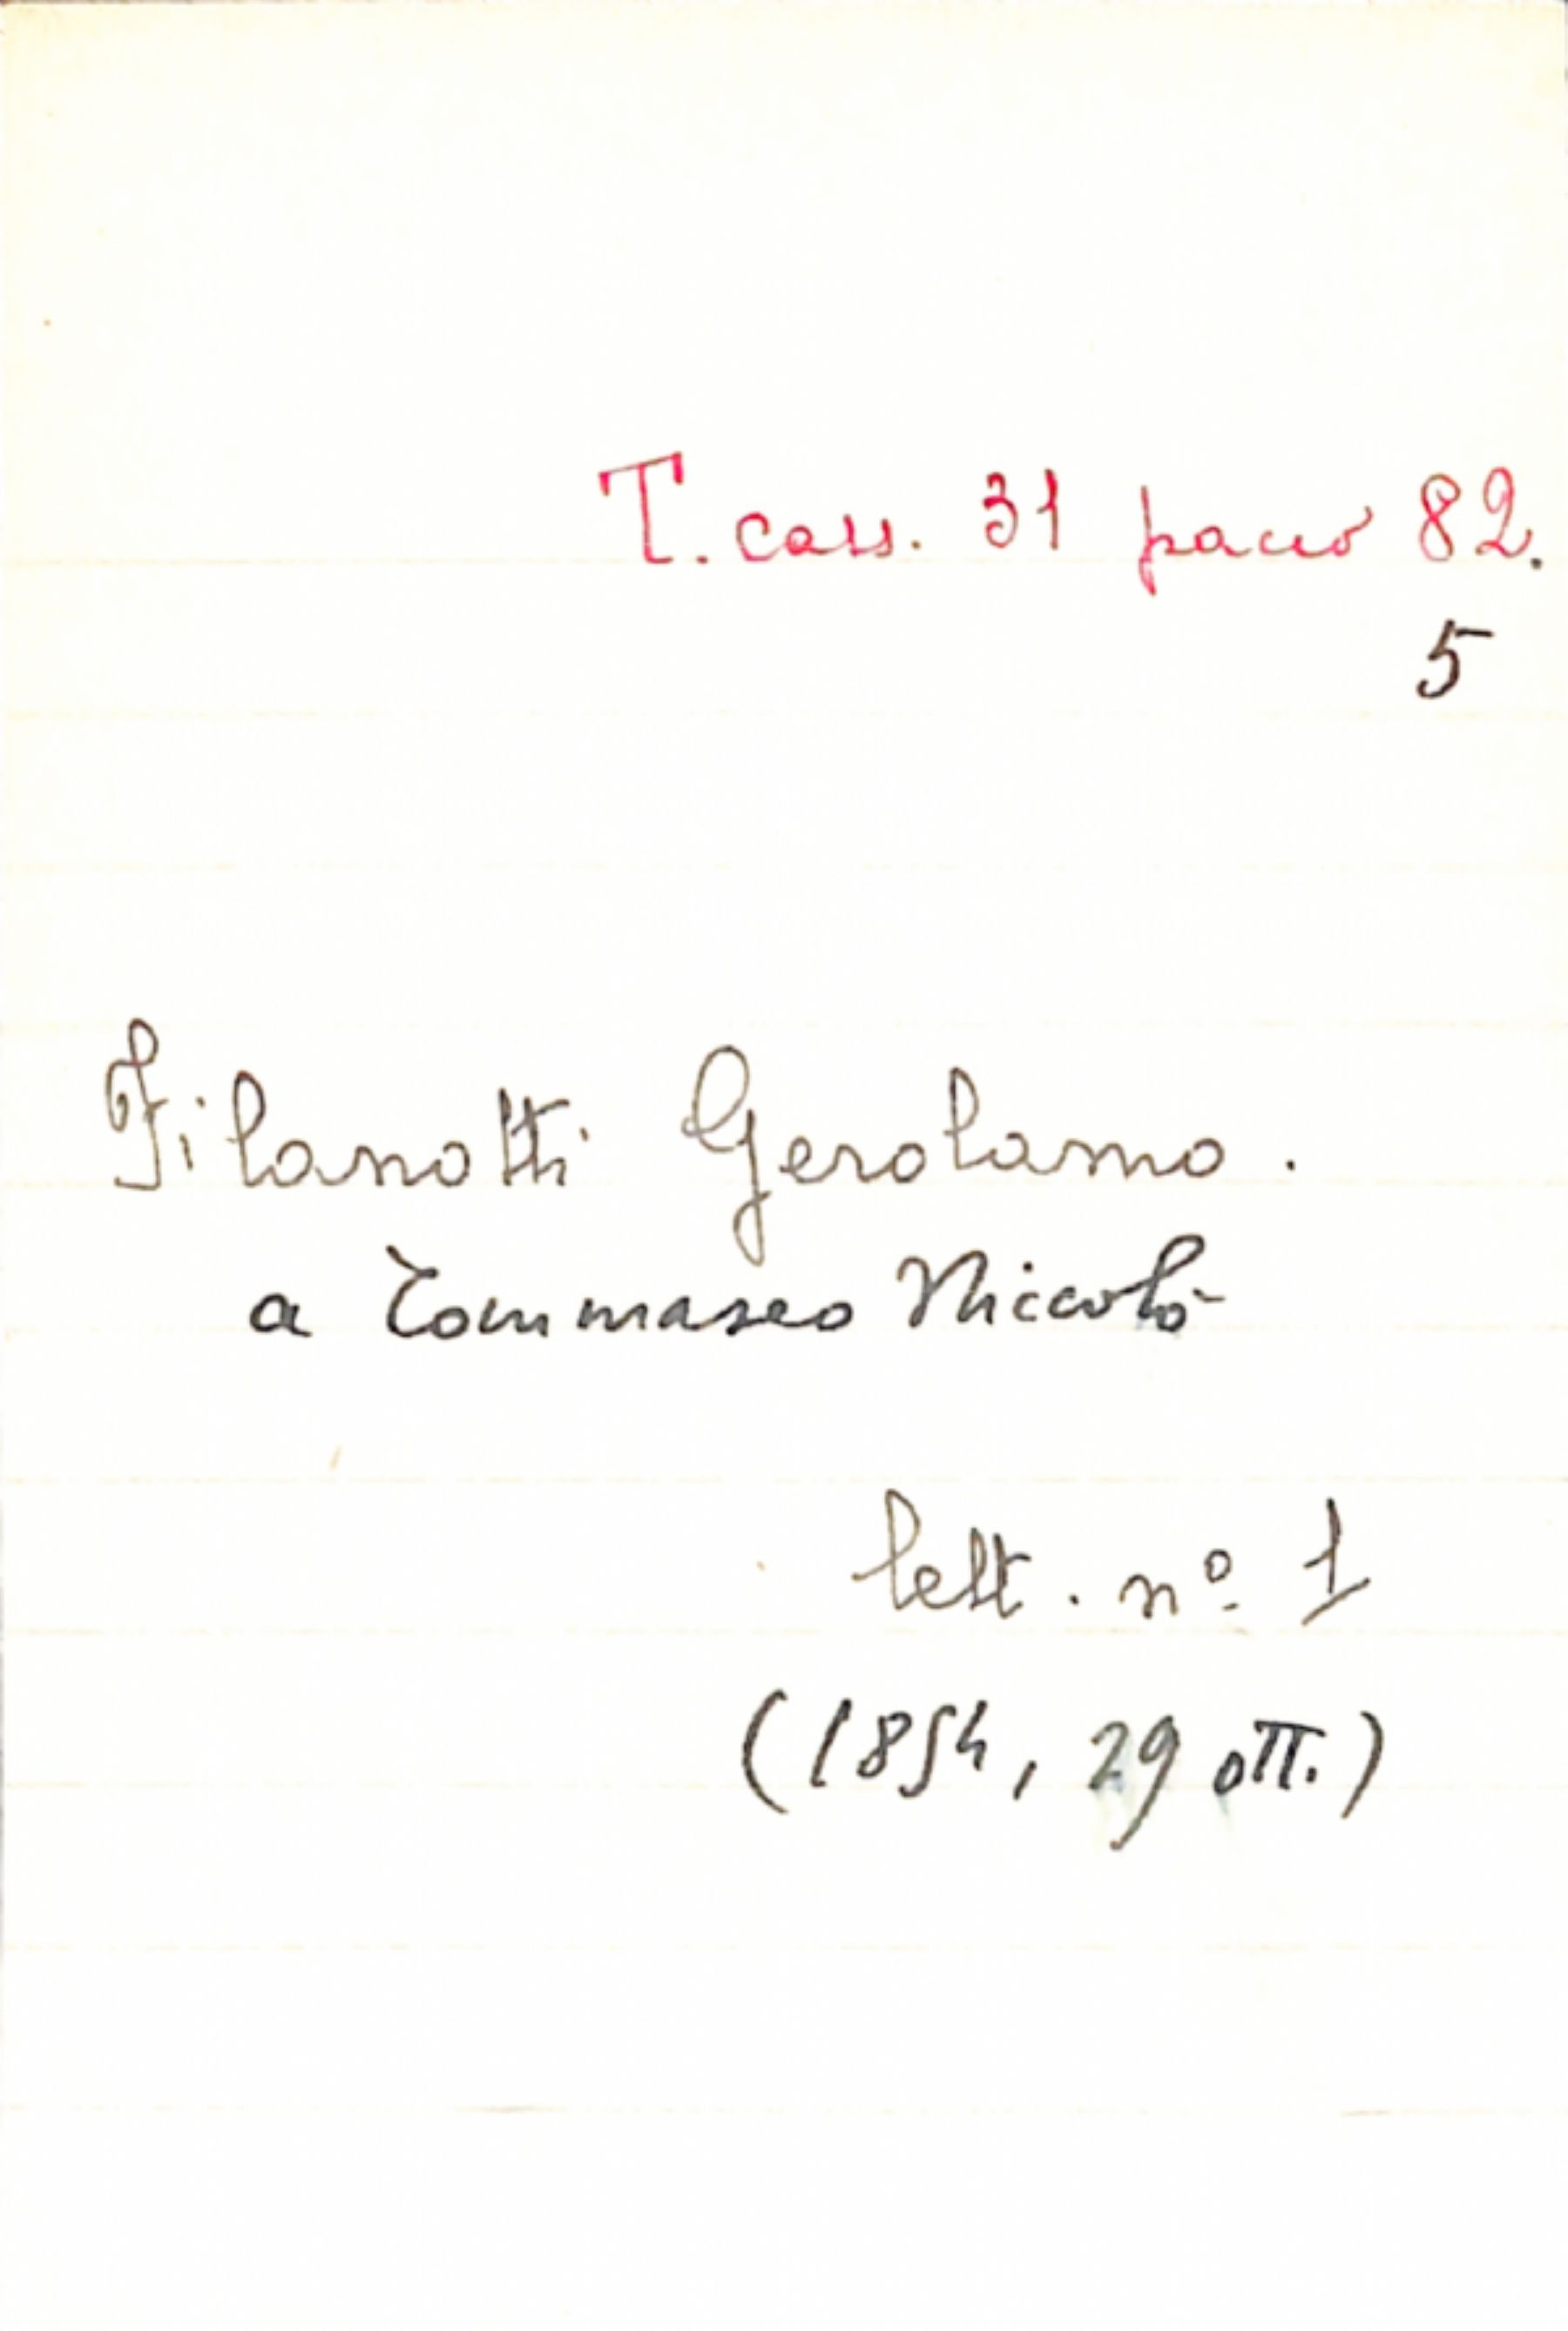 T. cass. 31 pacco 82.
5
Filanotti Gerolamo.
a Tommaseo Niccolò
lett. nº 1
(1854, 29 ott.)